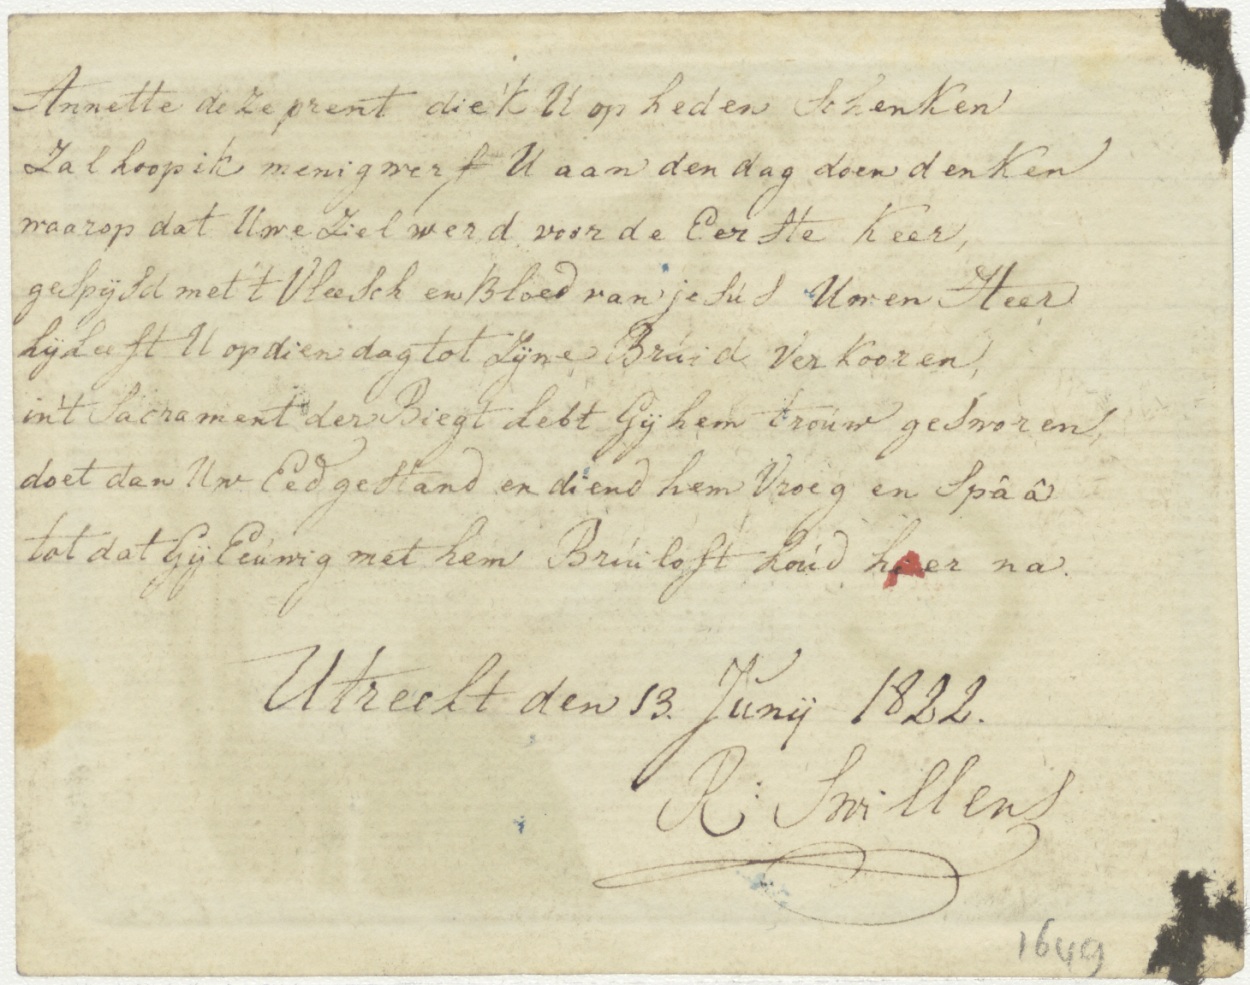 Annette deze prent die'k U op heden Schenken
Zal hoop ik menigwerf U aan den dag doen denken
waarop dat Uwe Ziel werd voor de Eerste Keer,
gespijsd met 't Vleesch en Bloed van jesús Uwen Heer
hij heeft U op dien dag tot Zijne Brúid Verkooren,
in't Sacrament der Biegt hebt Gij hem troúw gesworen,
doet dan Uw Eed gestand en diend hem Vroeg en Spââ
tot dat Gij Eeúwig met hem Brúiloft hoúd hier na.
Utrecht den 13. Junij 1822.
R: Swillens
1649